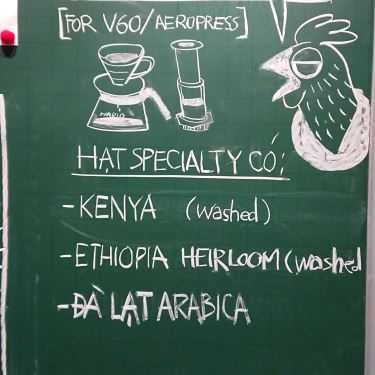 [FOR V60/AEROPRESS]
HARIO
HẠT SPECIALTY CÓ:
-KENYA (washed)
-ETHIOPIA HEIRLOOM (washed
-ĐÀ LẠT ARABICA